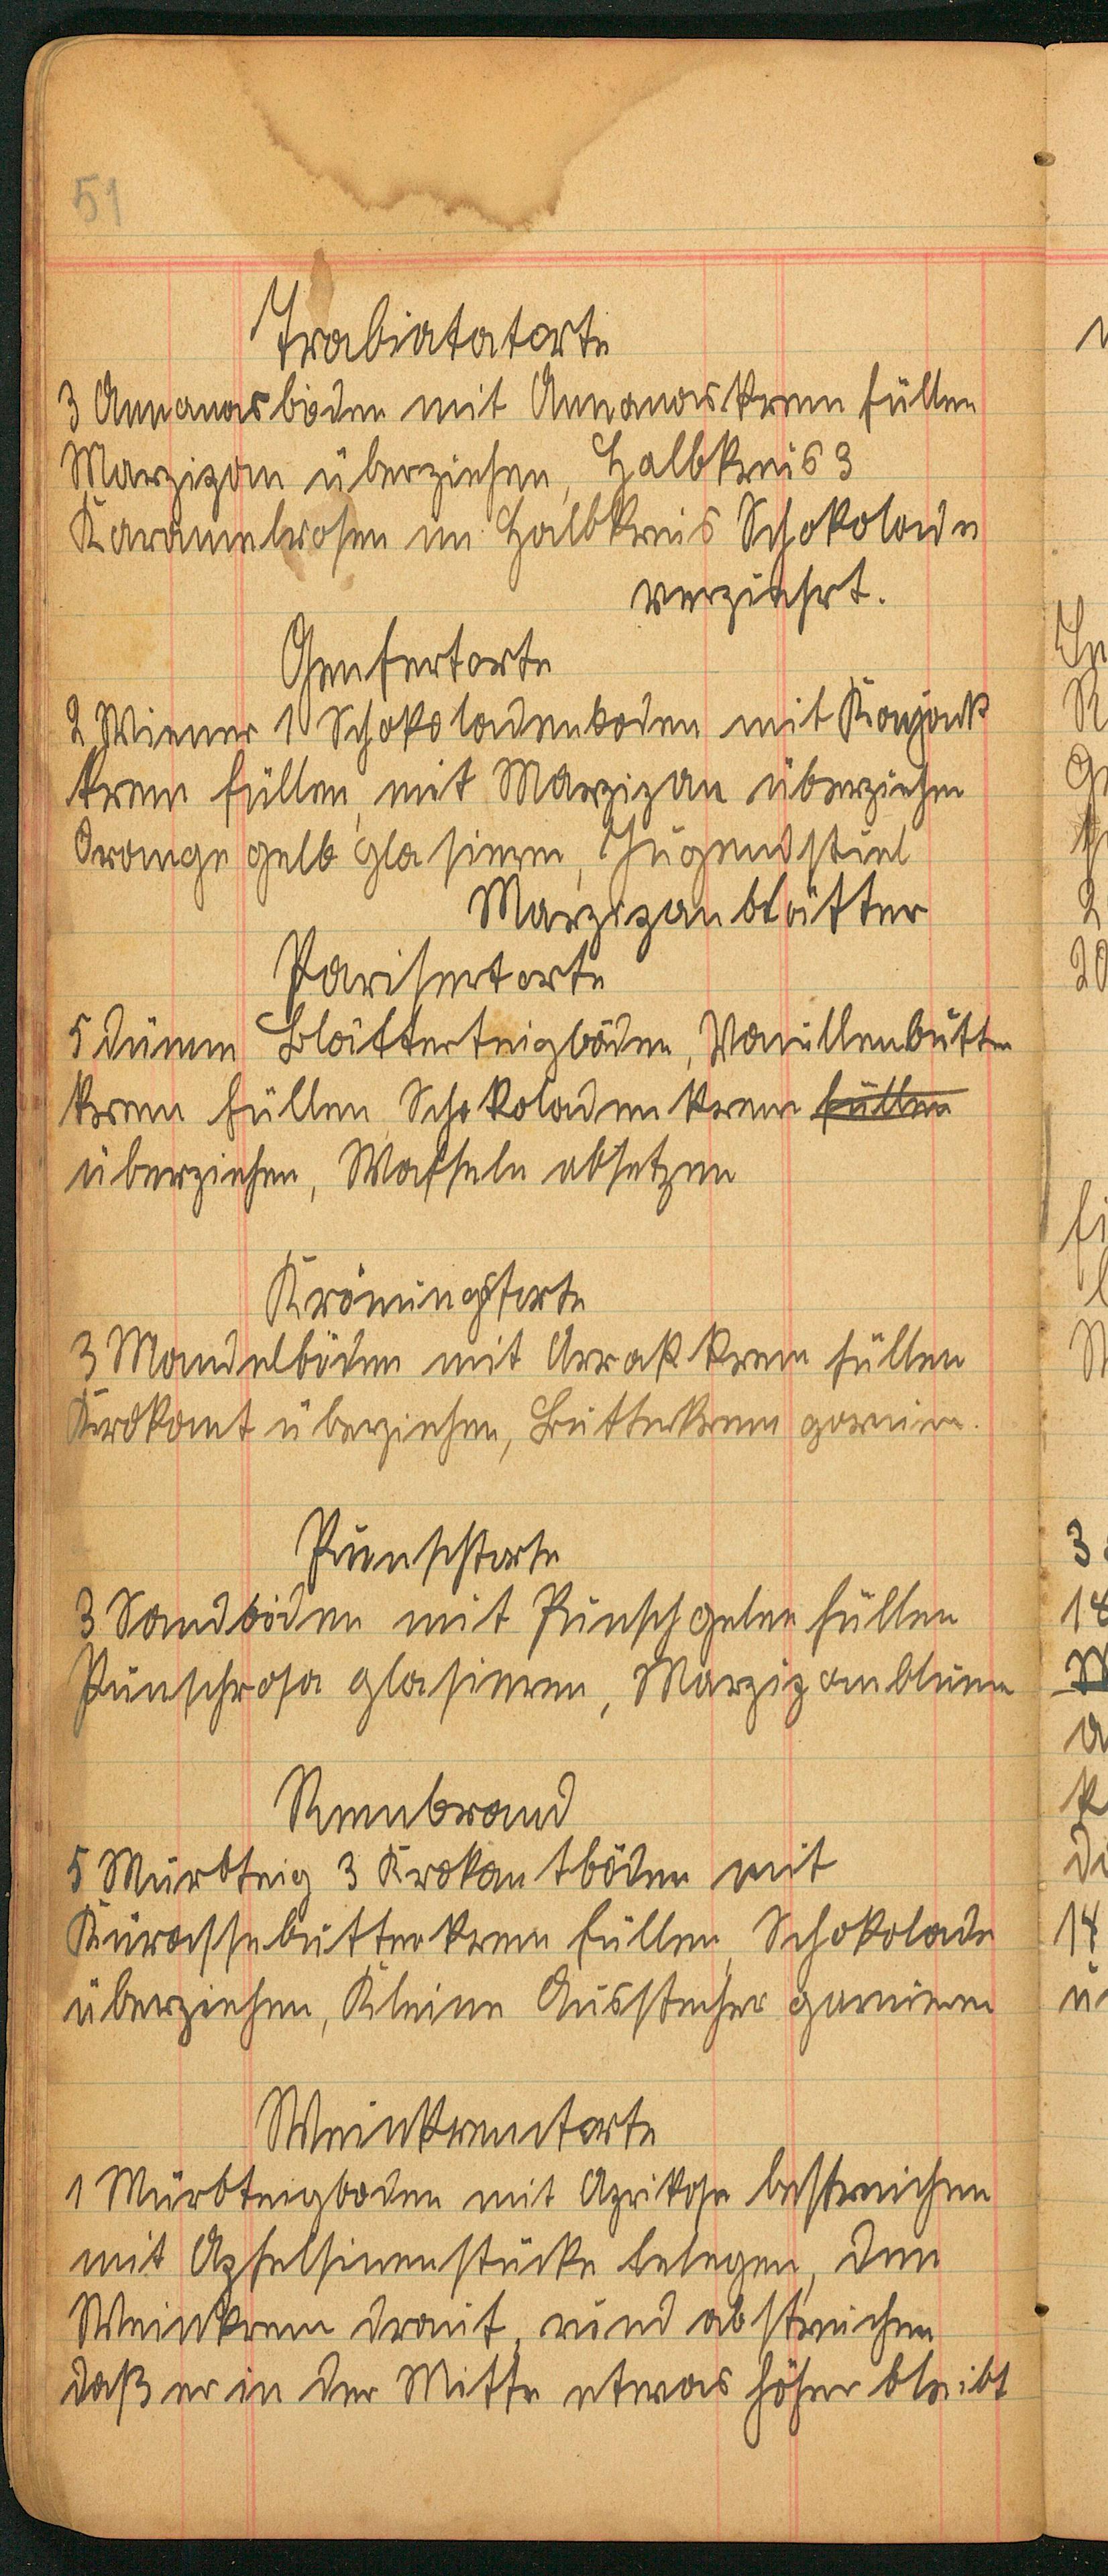 51
Trabiatatorte
3 Annanasböden mit Annanaskrem füllen
Marzipan überziehen, Halbkreis 3
Karamelrosen im Halbkreis Schokolade
verziehrt.
Genfertorte
2 Wiener 1 Schokoladenboden mit Konjank
krem füllen, mit Marzipan überziehen
Orange gelb glasieren, Jugendstiel
Marzipanblätter
Parisertorte
5 dünne Blätterteigböden, Vanillenbutter
krem füllen, Schokoladenkrem füllen
überziehen, Waffeln absetzen
Krönungstorte
3 Mandelböden mit Arrakkrem füllen
Krokant überziehen, Butterkrem garnieren.
Punschtorte
3 Sandböden mit Punschgelee füllen
Punschrosa glasieren, Marzipanblume
Rembrand
5 Mürbteig 3 Krokantböden mit
Kürassebutterkrem füllen, Schokolade
überziehen, Kleine Ausstecher garnieren
Weinkremtorte
1 Mürbteigboden mit Aprikose bestreichen
mit Apfelsinenstücke belegen, den
Weinkrem drauf, rund abstreichen
daß er in der Mitte etwas höher bleibt